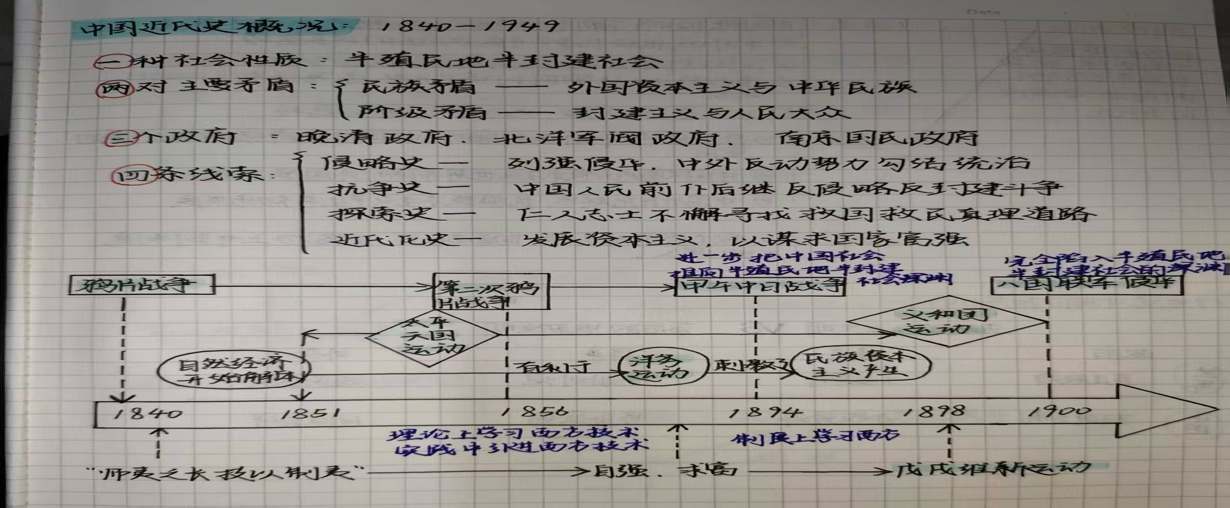 中国近代史概况: 1840-1949
一种社会性质: 半殖民地半封建社会
两对主要矛盾: 民族矛盾 —— 外国资本主义与中华民族
阶级矛盾 —— 封建主义与人民大众
三个政府: 晚清政府. 北洋军阀政府. 南京国民政府
四条线索: 侵略史 — 列强侵华. 中外反动势力勾结统治
抗争史 — 中国人民前仆后继反侵略反封建斗争
探索史 — 仁人志士不懈寻找救国救民真理道路
近代化史 — 发展资本主义, 以谋求国家富强
进一步把中国社会
推向半殖民地半封建
社会深渊
完全陷入半殖民地
半封建社会的深渊
鸦片战争
第二次鸦
片战争
甲午中日战争
八国联军侵华
太平
天国
运动
义和团
运动
自然经济
开始解体
有利于
洋务
运动
刺激了
民族资本
主义产生
1840 1851 1856 1894 1898 1900
理论上学习西方技术
实践中引进西方技术
制度上学习西方
"师夷之长技以制夷" 自强. 求富 戊戌维新运动